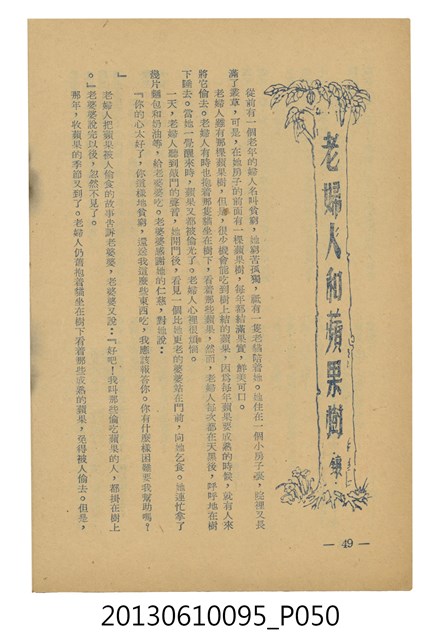 老婦人和蘋果樹
從前有一個老年的婦人名叫貧窮，她窮苦孤獨，祇有一隻老貓陪着她。她住在一個小房子裏，庭裡又長
滿了叢草，可是，在她房子的前面有一棵蘋果樹，每年都結滿果實，鮮美可口。
老婦人雖有那棵蘋果樹，但是，很少機會能吃到樹上結的蘋果，因爲每年蘋果要成熟的時候，就有人來
將它偷去。老婦人有時也抱着那隻貓坐在樹下，看着那些蘋果，然而，老婦人每次都在天黑後，呼呼地在樹
下睡去。當她一覺醒來時，蘋果又都被偷光了。老婦人心裡很煩惱。
一天，老婦人聽到敲門的聲音，她開門後，看見一個比她更老的婆婆站在門前，向她乞食。她連忙拿了
幾片麵包和奶油等，給老婆婆吃。老婆婆感謝她的仁慈，對她說：
『你的心太好了，你這樣地貧窮，還送我這麼些東西吃，我應該報答你。你有什麼樣困難要我幫助嗎？
』
老婦人把蘋果被人偷食的故事告訴老婆婆，老婆婆又說：『好吧！我叫那些偷吃蘋果的人，都掛在樹上
。』老婆婆說完以後，忽然不見了。
那年，收蘋果的季節又到了。老婦人仍舊抱着貓坐在樹下看着那些成熟的蘋果，免得被人偷去。但是，
— 49 —
20130610095_P050